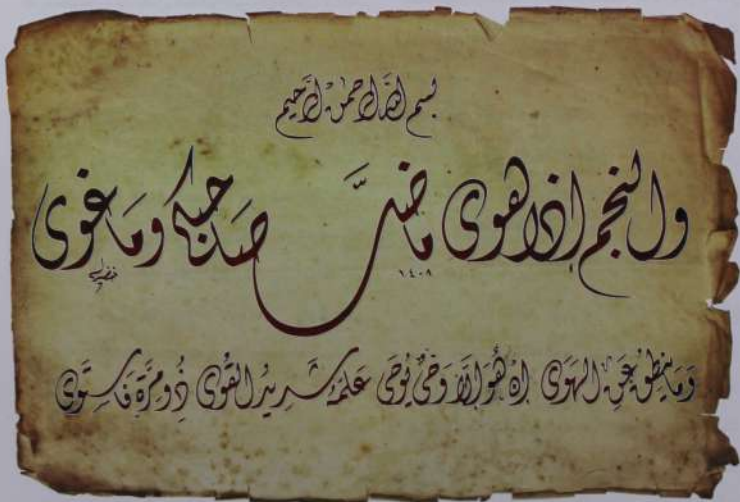 بسم الله الرحمن الرحيم
والنجم إذا هوى ما ضلَّ صاحبكم وما غوى
١٤٠٨
وَمَا ينطق عَنِ الهَوَى إن هُوَ إلا وَحْيٌ يُوحَى عَلمَهُ شَدِيدُ القُوَى ذُو مِرَّةٍ فَاستَوَى